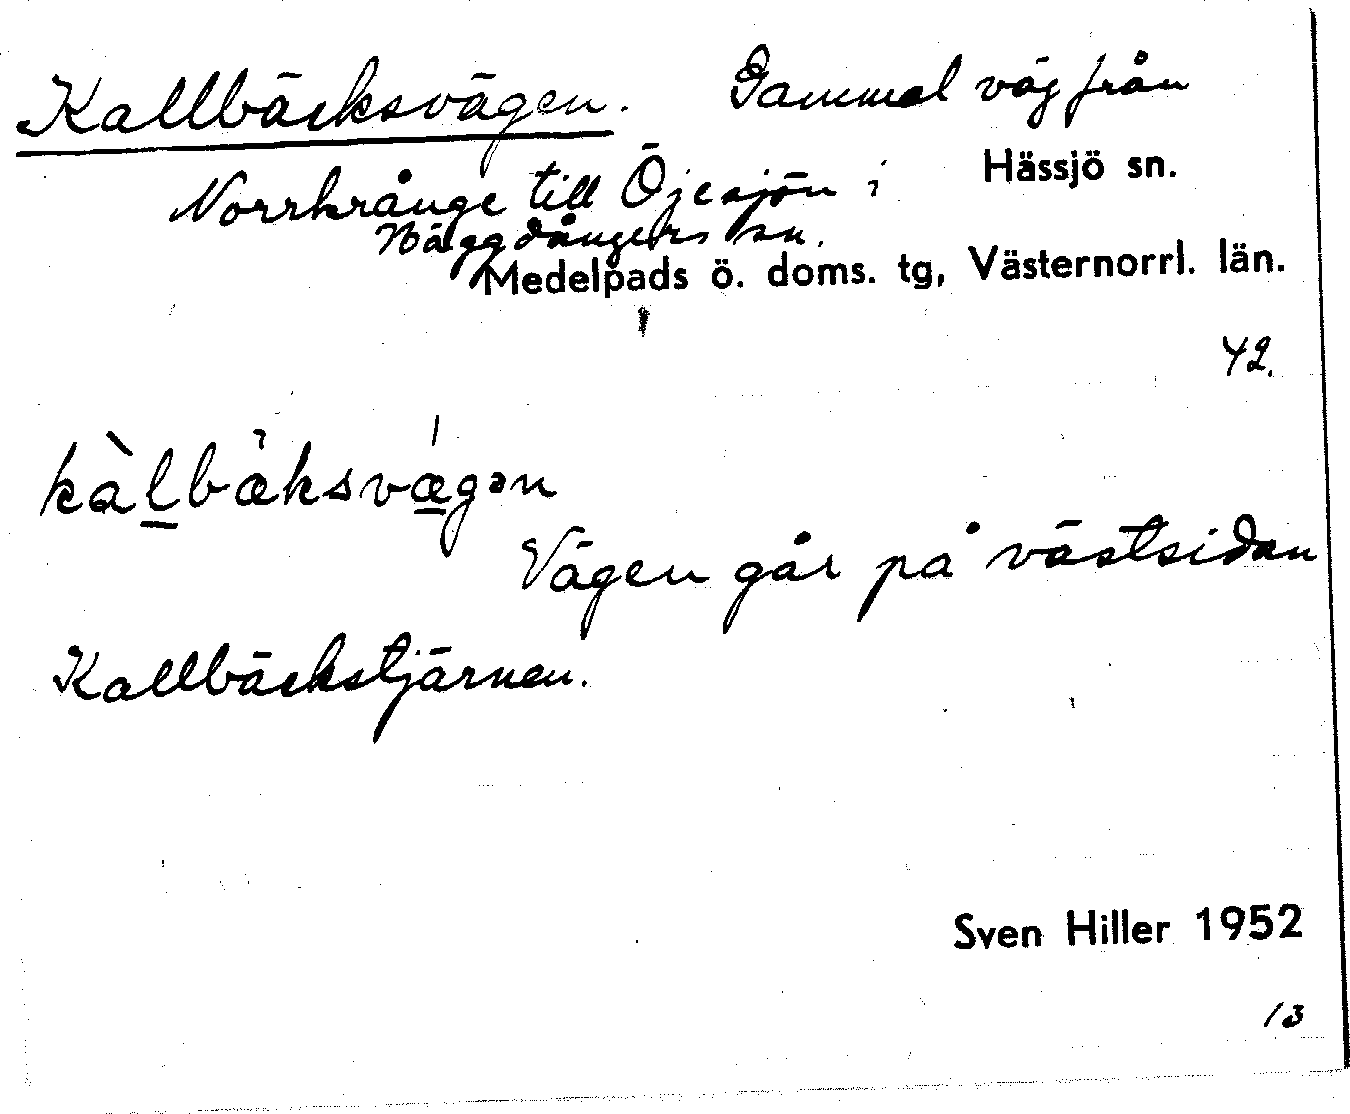 Kallbäcksvägen. Gammal väg från
Norrkrånge till Öjesjön i Hässjö sn.
Häggdångers sn.
Medelpads ö. doms. tg, Västernorrl. län.
42.
kàlbäksvǽgən
Vägen går på västsidan
Kallbäckstjärnen.
Sven Hiller 1952
13